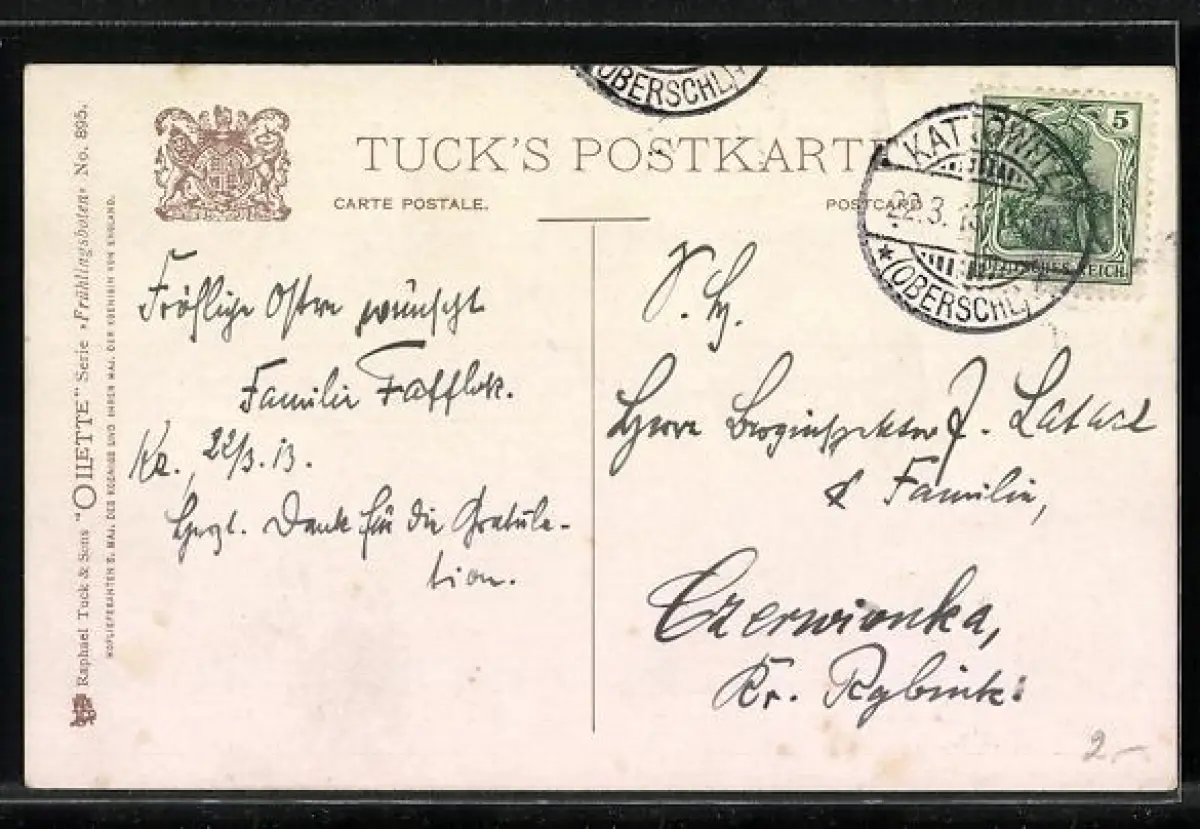 (OBERSCHL.)
TUCK'S POSTKARTE
CARTE POSTALE.
POSTCARD
KATTOWITZ
22.3.13
* (OBERSCHL.)
5
DEUTSCHES REICH
Raphael Tuck & Sons "OILETTE" Serie »Frühlingsboten« No. 895.
HOFLIEFERANTEN S. MAJ. DES KOENIGS UND IHRER MAJ. DER KOENIGIN VON ENGLAND.
Fröhliche Ostern wünscht
Familie
Ka., 22/3.13.
Herzl. Dank für die Gratula-
tion.
Herrn Berginspektor J.
& Familie,
Czerwionka,
Kr. Rybnik.
2.-